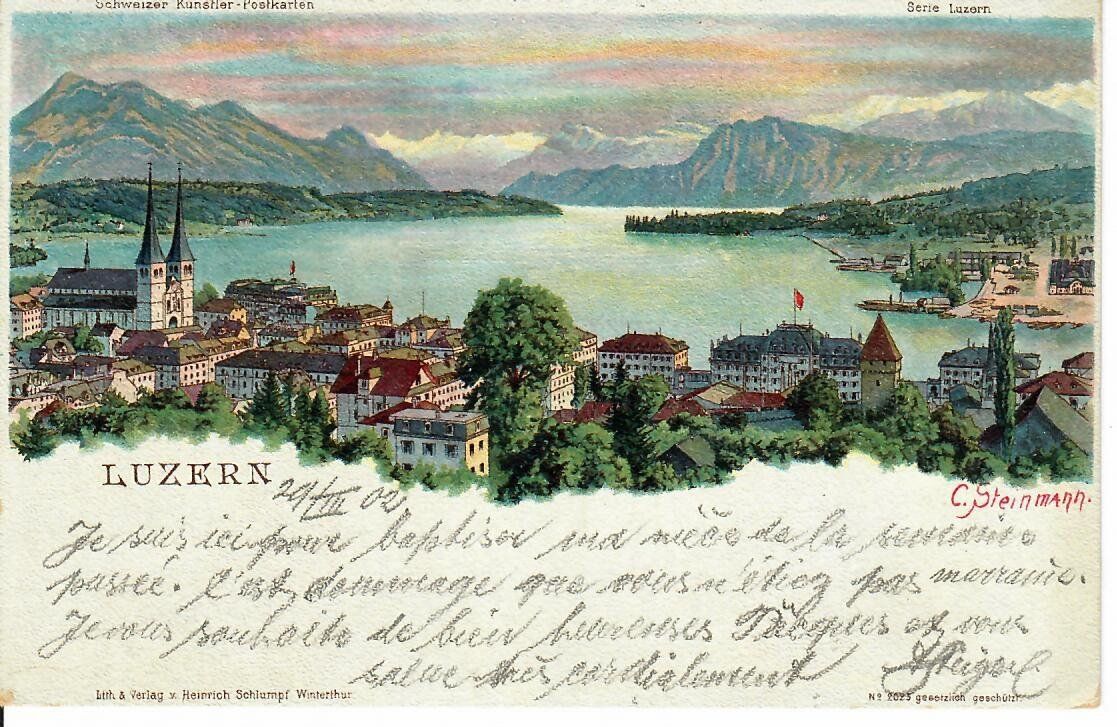 Schweizer Künstler-Postkarten
Serie Luzern
LUZERN
29/III 02
C. Steinmann.
Je suis ici pour baptiser ma nièce de la semaine
passée. C'est dommage que vous n'étiez pas marraine.
Je vous souhaite de bien heureuses Pâques et vous
salue très cordialement
Lith. & Verlag v. Heinrich Schlumpf Winterthur
No 2025 gesetzlich geschützt.